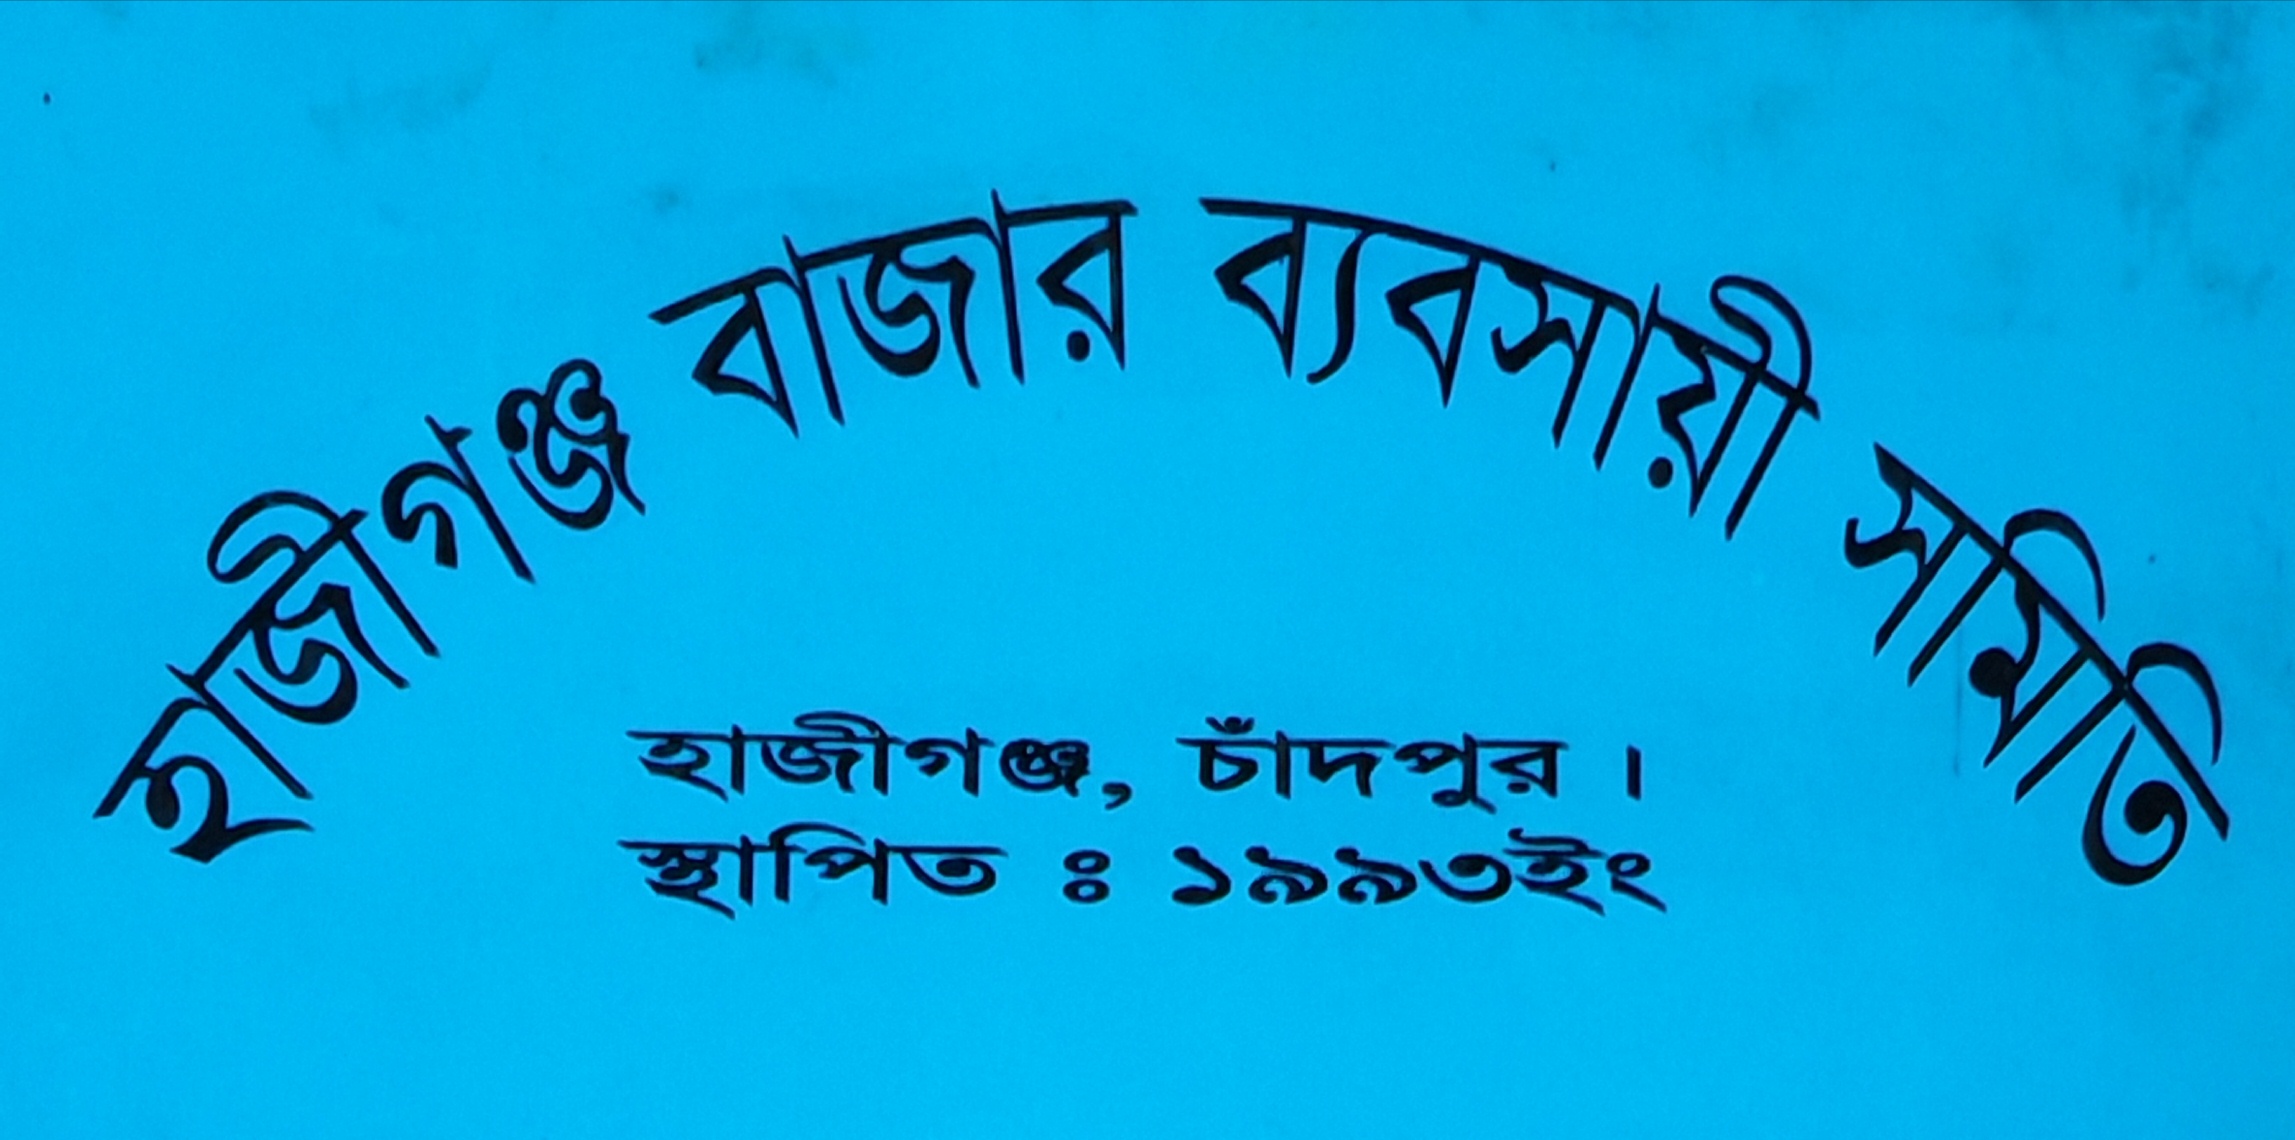 হাজীগঞ্জ বাজার ব্যবসায়ী সমিতি
হাজীগঞ্জ, চাঁদপুর ।
স্থাপিত ঃ ১৯৯৩ইং